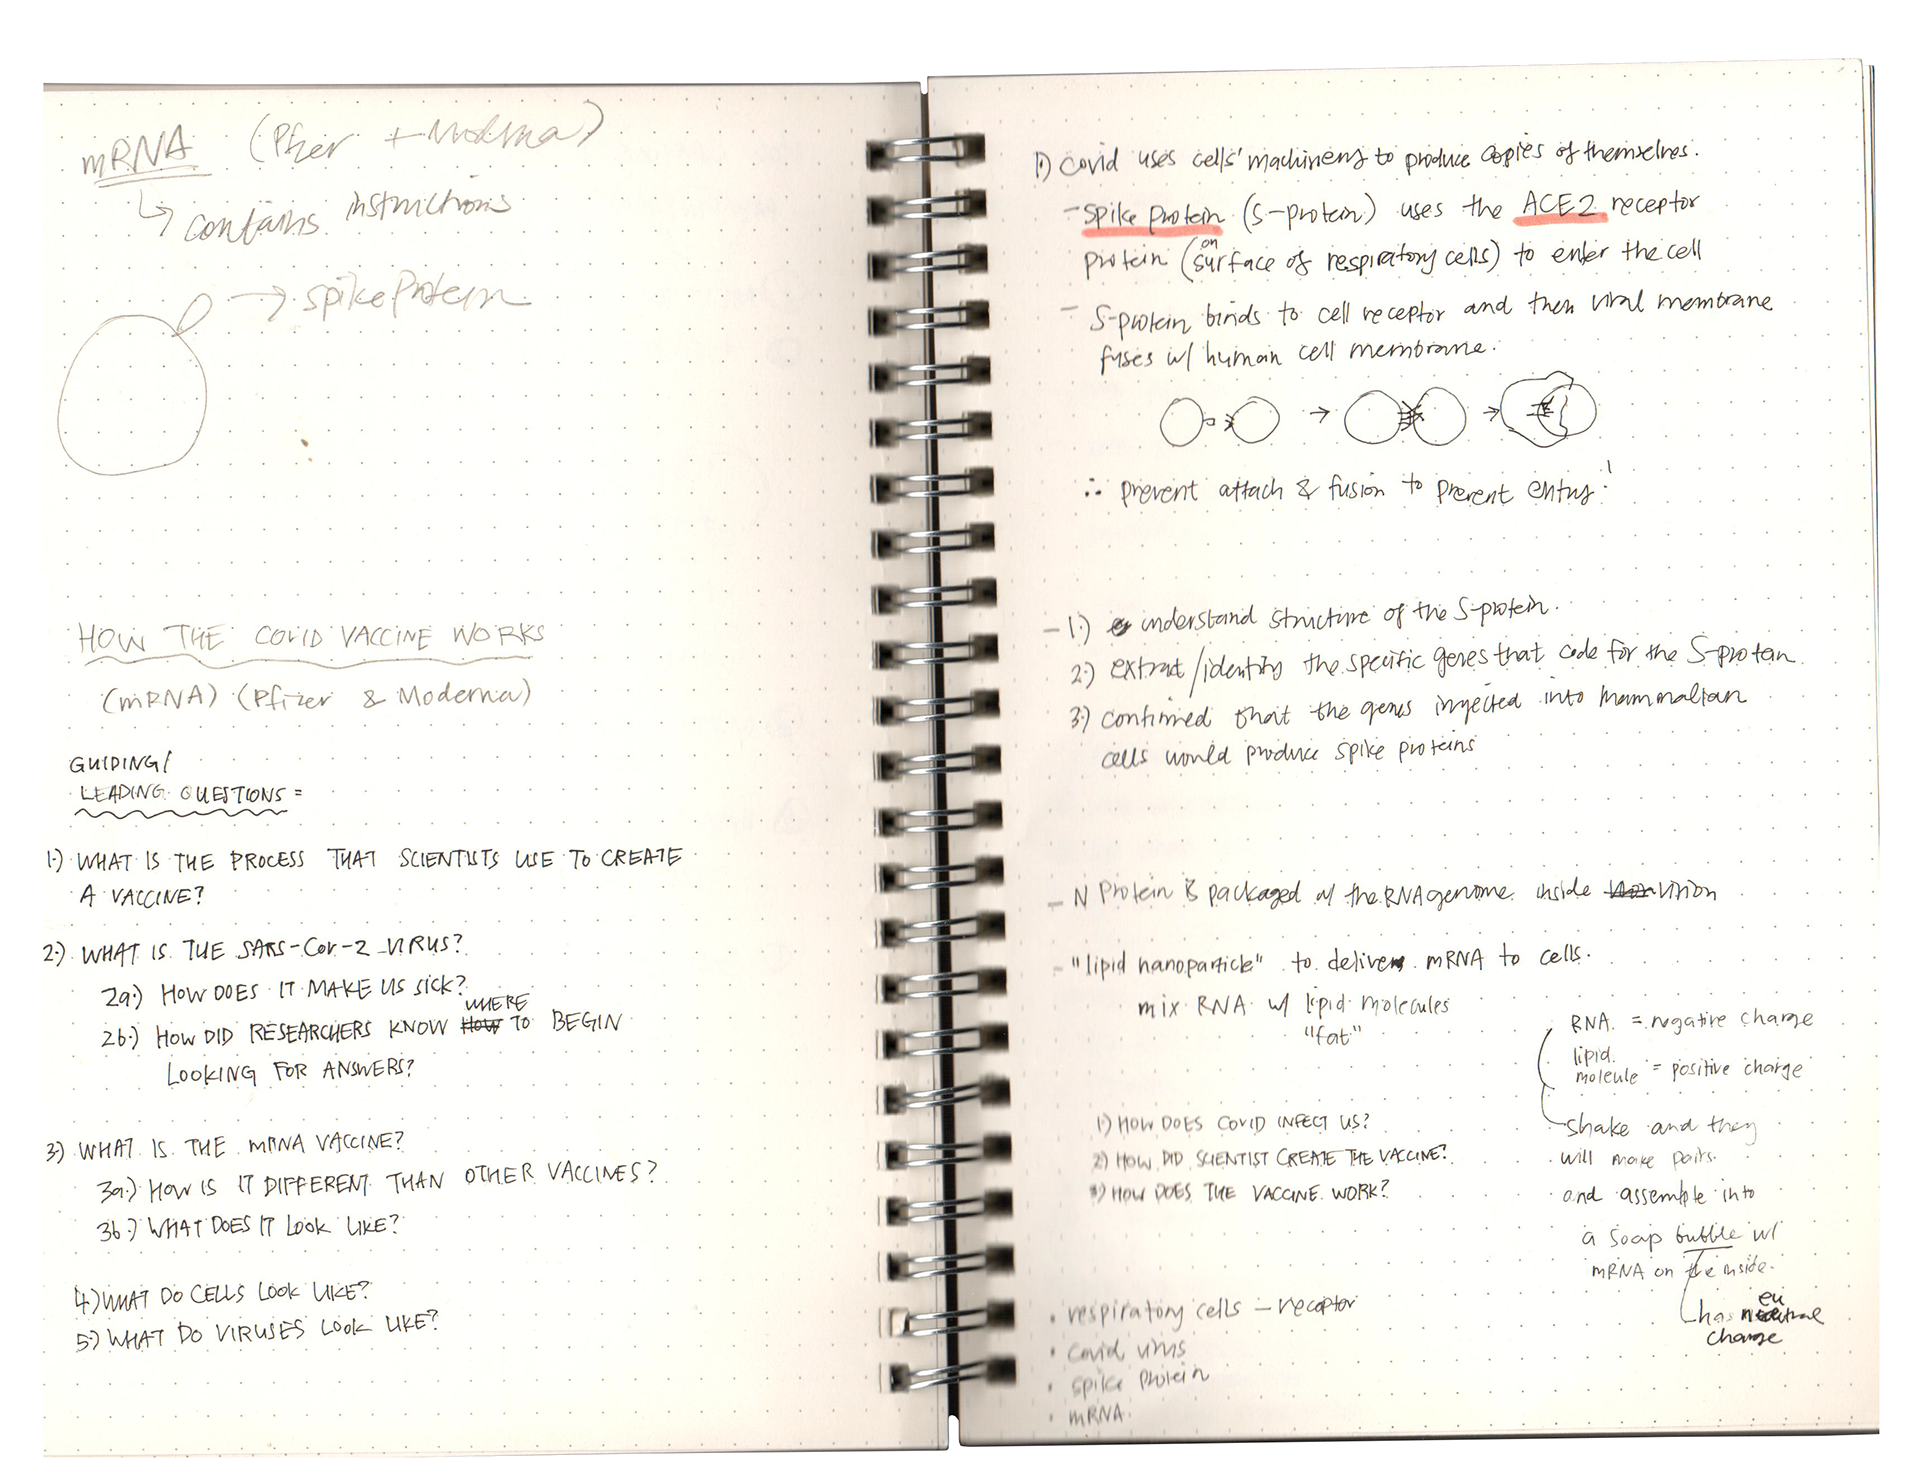 mRNA (Pfizer + Moderna)
↳ contains instructions
→ spike protein
HOW THE COVID VACCINE WORKS
(mRNA) (Pfizer & Moderna)
GUIDING/
LEADING QUESTIONS =
1.) WHAT IS THE PROCESS THAT SCIENTISTS USE TO CREATE
A VACCINE?
2.) WHAT IS THE SARS-CoV-2 VIRUS?
2a.) HOW DOES IT MAKE US SICK?
WHERE
2b.) HOW DID RESEARCHERS KNOW HOW TO BEGIN
LOOKING FOR ANSWERS?
3.) WHAT IS THE MRNA VACCINE?
3a.) HOW IS IT DIFFERENT THAN OTHER VACCINES?
3b.) WHAT DOES IT LOOK LIKE?
4.) WHAT DO CELLS LOOK LIKE?
5.) WHAT DO VIRUSES LOOK LIKE?
1.) Covid uses cells' machinery to produce copies of themselves.
- spike protein (S-protein) uses the ACE2 receptor
protein (on surface of respiratory cells) to enter the cell
- S-protein binds to cell receptor and then viral membrane
fuses w/ human cell membrane.
∴ prevent attach & fusion to prevent entry!
- 1.) understand structure of the S-protein.
2.) extract/identify the specific genes that code for the S-protein
3.) confirmed that the genes injected into mammalian
cells would produce spike proteins
- N protein is packaged w/ the RNA genome inside virion
- "lipid nanoparticle" to deliver mRNA to cells.
mix RNA w/ lipid molecules
"fat"
RNA = negative charge
lipid
molecule = positive charge
shake and they
will make pairs
and assemble into
a soap bubble w/
mRNA on the inside.
has neutral
charge
1) HOW DOES COVID INFECT US?
2) HOW DID SCIENTIST CREATE THE VACCINE?
3) HOW DOES THE VACCINE WORK?
• respiratory cells - receptor
• covid virus
• spike protein
• mRNA